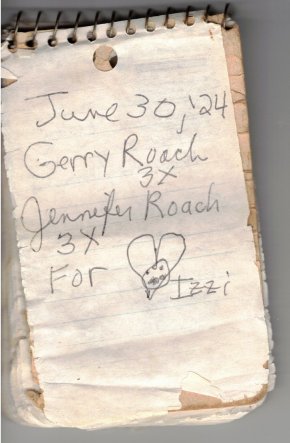 June 30, '24
Gerry Roach
3X
Jennifer Roach
3X
For Izzi